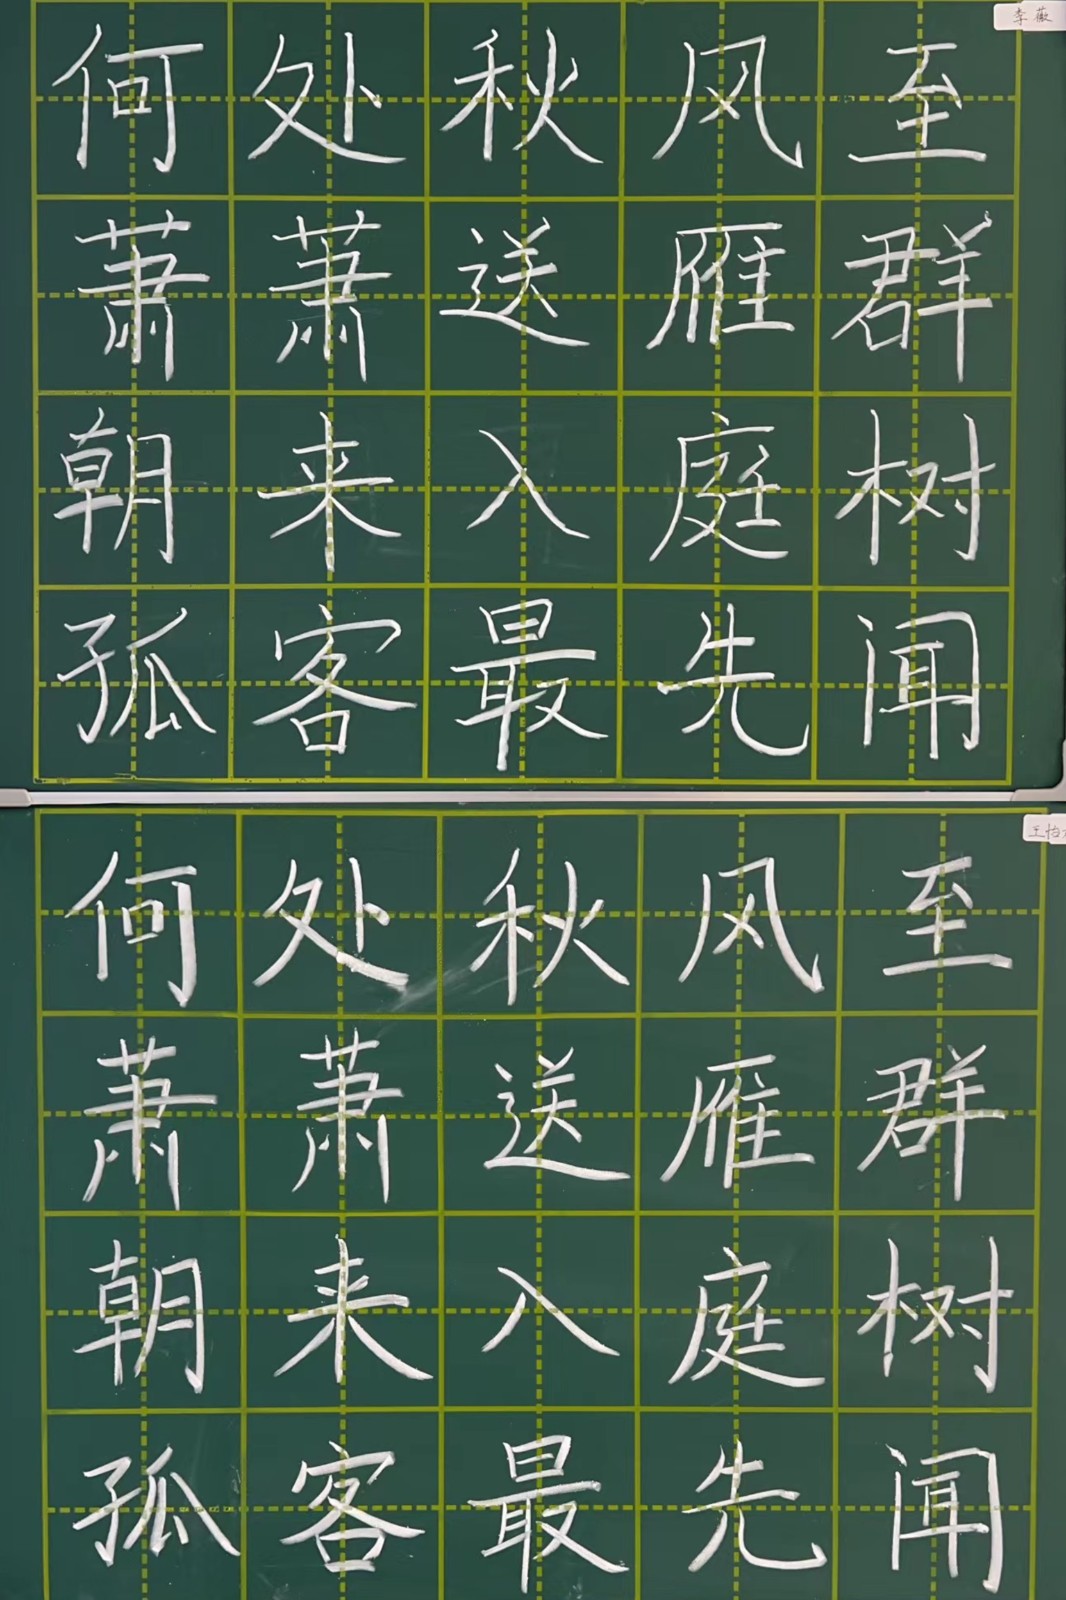 李薇
何处秋风至
萧萧送雁群
朝来入庭树
孤客最先闻
王怡
何处秋风至
萧萧送雁群
朝来入庭树
孤客最先闻